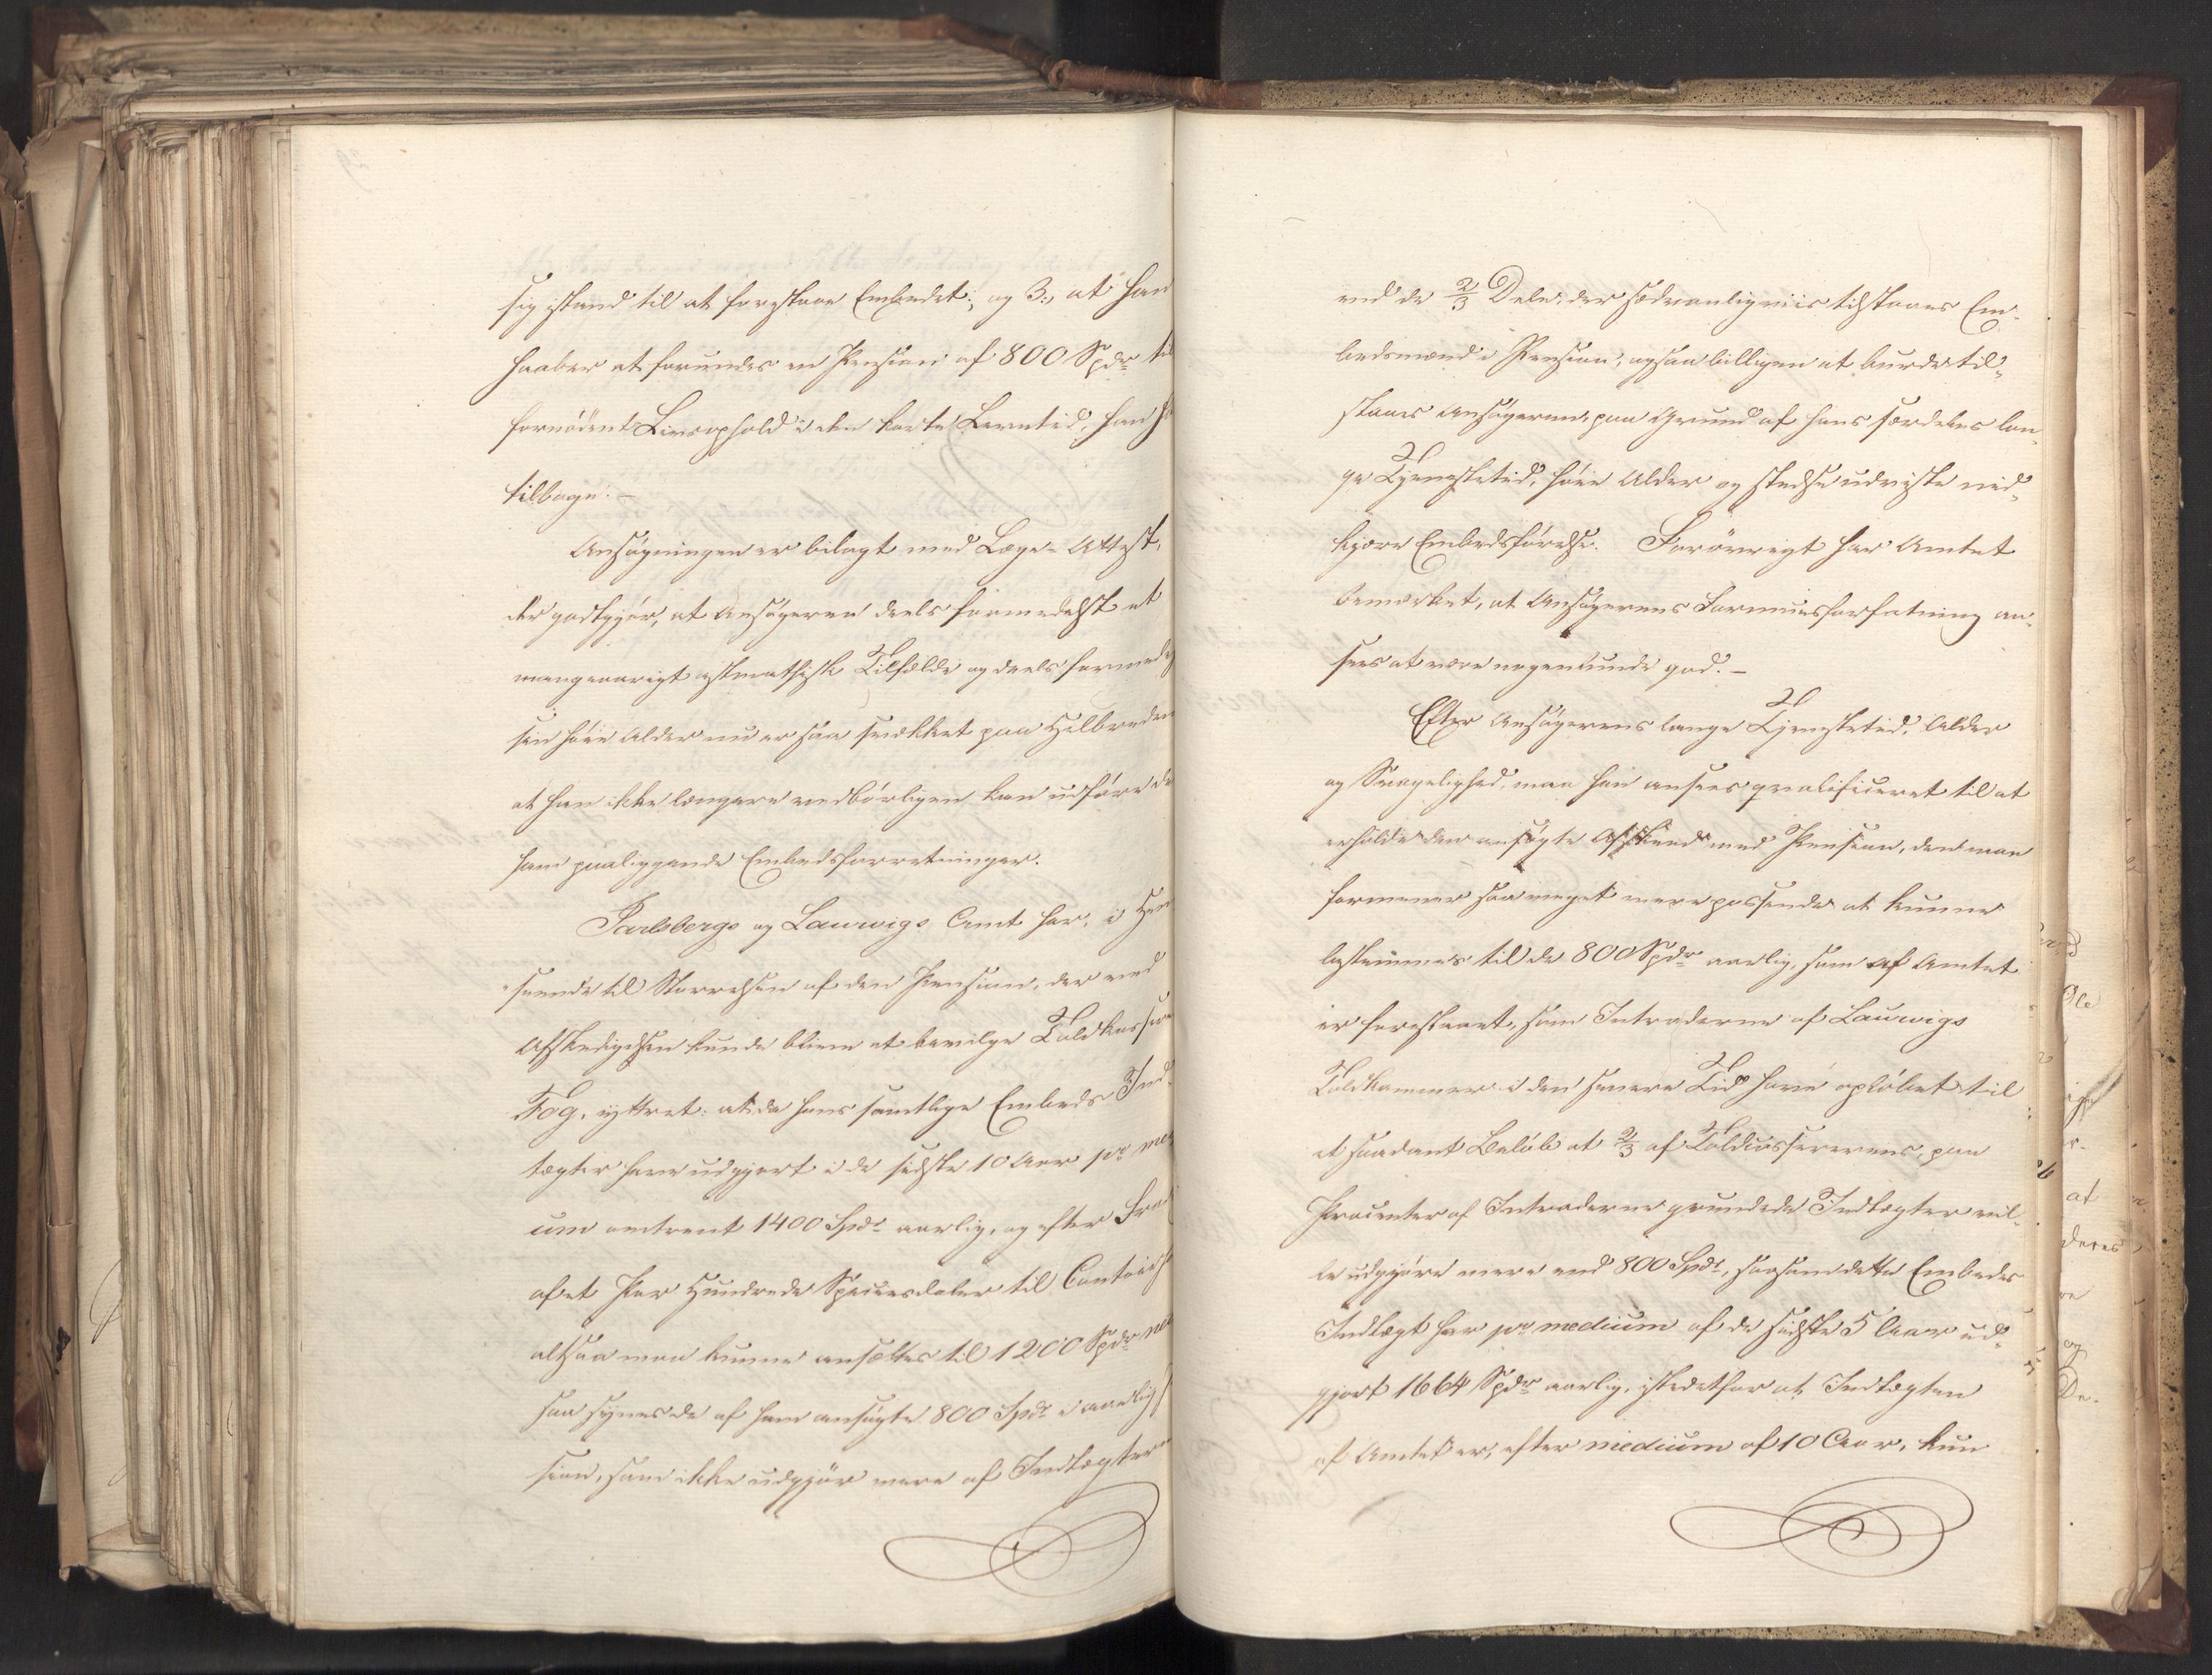 sig istand til at forestaae Embedet; og 3., at han
haaber at forundes en Pension af 800 Spdr til
fornödent Livsophold i den korte Levetid, han ha
tilbage. –
Ansögningen er bilagt med Læge-Attest,
der godtgjör, at Ansögeren deels formedelst et
mangeaarigt astmathisk Tilfælde og deels formede
sin höie Alder nu er saa svækket paa Helbreden
at han ikke længere vedbörligen kan udföre de
ham paaliggende Embedsforretninger.
Jarlsbergs og Laurvigs Amt har, i Hen
seende til Störrelsen af den Pension, der ved
Afskedigelsen kunde blive at bevilge Toldkasserer
Fog, yttret: at da hans samtlige Embeds Ind-
tægter have udgjort i de sidste 10 Aar pr medi
um omtrent 1400 Spdr aarlig, og efter Fra
af et Par Hundrede Speciesdaler til Contoirh
altsaa maa kunne ansættes til 1200 Spdr ne
saa synes de af ham ansögte 800 Spdr i aarlig P
sion, som ikke udgjör mere af Indtægter
end de 2/3 Dele, der sædvanligviis tilstaaes Em-
bedsmænd i Pension, ogsaa billigen at burde til-
staaes Ansögeren, paa Grund af hans særdeles lan-
ge Tjenestetid, höie Alder og stedse udviste nid-
kjære Embedsförelse. Forövrigt har Amtet
bemærket, at Ansögerens Formuesforfatning an-
sees at være nogenlunde god. –
Efter Ansögerens lange Tjenestetid, Alder
og Svagelighed, maa han ansees qvalificeret til at
erholde den ansögte Afskeed med Pension, den man
formener saa meget mere passende at kunne
bestemmes til de 800 Spdr aarlig, som af Amtet
er foreslaaet, som Intraderne af Laurvigs
Toldkammer i den senere Tid have oplöbet til
et saadant Belöb at 2/3 af Toldcassererens, paa
Procenter af Intraderne grundede Indtægter vil-
le udgjöre mere end 800 Spdr, saasom dette Embedes
Indtægt har pr medium af de sidste 5 Aar ud-
gjort 1664 Spdr aarlig, istedetfor at Indtægten
af Amtet er, efter medium af 10 Aar, kun